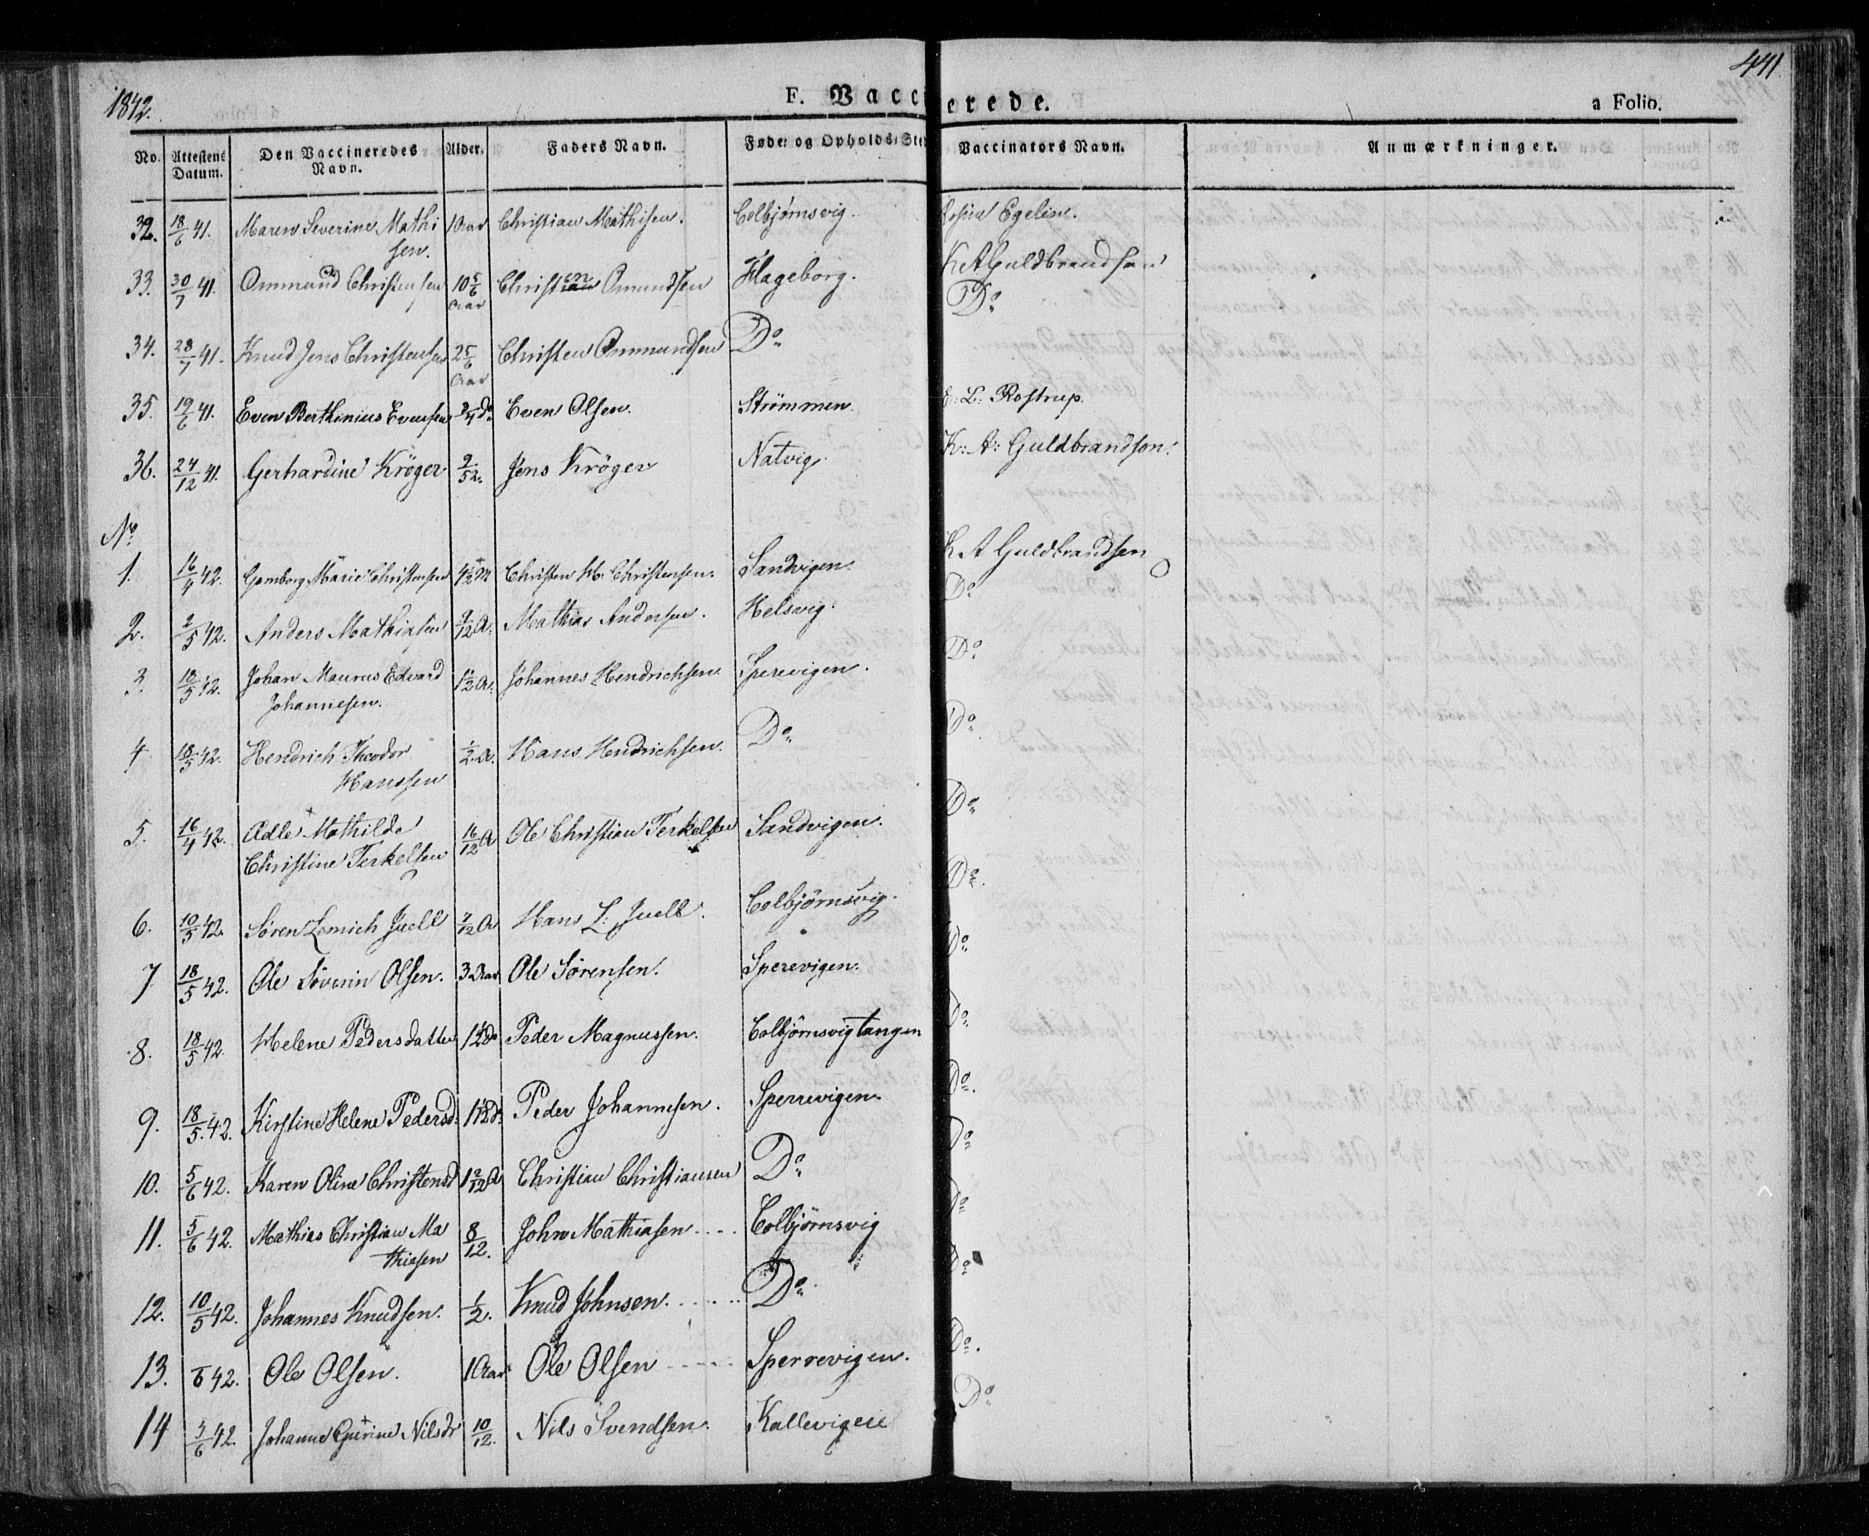 1842.
F. Vaccinerede.
a Folio.
441
No. Attestens Datum. Den Vaccineredes Navn. Alder. Faders Navn. Føde- og Opholds-Sted Vaccinators Navn. Anmærkninger.
32. 18/6 41. Maren Severine Mathi 1 Aar Christian Mathisen. Colbjørnsvig. Egelin.
sen.
33. 30/7 41. Ommund Christensen 10 5/6 Aar Christen Omundsen Hageborg. K A Guldbrandsen
Do
34. 28/7 41. Knud Jens Christensen 2 5/6 Aar Christen Ommundsen Do
35. 19/6 41. Even Berthinius Evensen 3/4 do Even Olsen. Strømmen. L. Rostrup.
36. 24/12 41. Gerhardine Krøger 9/52. Jens Krøger Natvig. K: A: Guldbrandson.
No
1. 16/4 42. Gomborg Marie Christensen Christen H. Christensen. Sandvigen. K A Guldbrandsen
2. 2/5 42. Anders Mathiasen 9/12 A. Mathias Andersen. Helsvig. Do
3. 18/5 42. Johan Maurus Edvard 1 1/2 A. Johannes Hendrichsen Sperevigen. Do
Johannesen.
4 18/5 42. Hendrich Theodor 1/2 A. Hans Hendrichsen. Do Do
Hanssen
5. 16/4 42. Adle Mathilde 16/12 A Ole Christian Terkelsen Sandvigen. Do
Christine Terkelsen
6. 10/5 42. Søren Lemich Juell 7/12 A Hans L: Juell. Colbjørnsvig. Do.
7 18/5 42. Ole Severin Olsen. 3 Aar Ole Sørensen. Sperevigen. Do
8. 18/5 42. Helene Pedersdatter 1 1/2 do Peder Magnussen. Colbjørnsvigtangen Do
9. 18/5. 42. Kirstine Helene Pedersd. 1 1/2 do. Peder Johannesen. Sperrevigen. Do.
10. 5/6 42. Karen Oline Christensd 1 2/12 A Christian Christiansen Do Do
11. 5/6 42. Mathias Christian Ma 8/12. John Mathiasen Colbjørnsvig Do
thiasen
12. 10/5 42. Johannes Knudsen. 1/2. Knud Johnsen. Do Do
13. 6 42. Ole Olsen. 1 Aar Ole Olsen Sperrevigen. Do.
14 5/6 42. Johanne Gurine Nilsdr 10/12. Nils Svendsen. Kallevigen Do